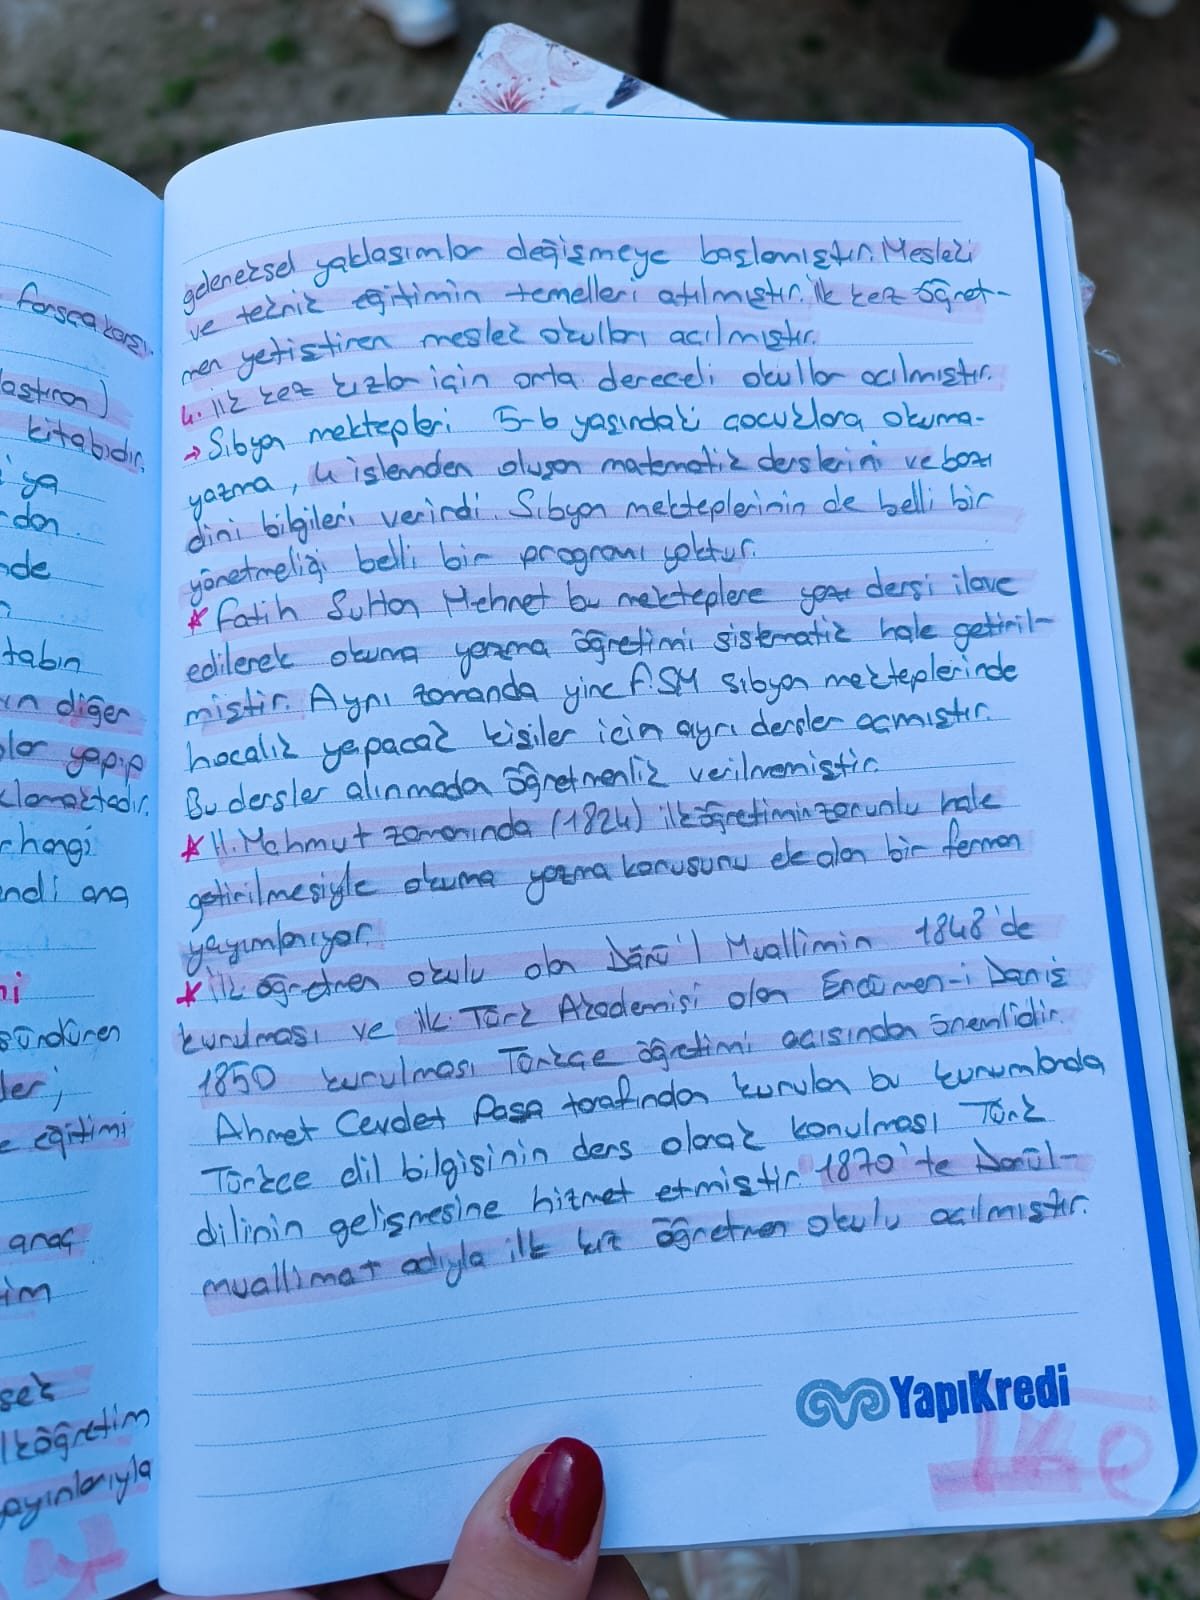 farsça karşı.
laştıran)
kitabıdır.
i ya
rdan.
nde
tabın
ın diğer
lar yapıp
klamaktadır.
r hangi
endi ana
ni
sündüren
ler;
e eğitimi
araç
im
sek
lköğretim
ayınlarıyla
geleneksel yaklaşımlar değişmeye başlamıştır. Mesleki
ve teknik eğitimin temelleri atılmıştır. İlk kez öğret-
men yetiştiren meslek okulları açılmıştır.
4. ilk kez kızlar için orta dereceli okullar açılmıştır.
→ Sıbyan mektepleri 5-6 yaşındaki çocuklara okuma-
yazma, 4 işlemden oluşan matematik derslerini ve bazı
dini bilgileri verirdi. Sıbyan mekteplerinin de belli bir
yönetmeliği belli bir programı yoktur.
* Fatih Sultan Mehmet bu mekteplere yazı dersi ilave
edilerek okuma yazma öğretimi sistematik hale getiril-
miştir. Aynı zamanda yine F.S.M sıbyan mekteplerinde
hocalık yapacak kişiler için ayrı dersler açmıştır.
Bu dersler alınmadan öğretmenlik verilmemiştir.
* II. Mahmut zamanında (1824) ilköğretimin zorunlu hale
getirilmesiyle okuma yazma konusunu ele alan bir ferman
yayımlanıyor.
* İlk öğretmen okulu olan Dârü'l Muallimin 1848'de
kurulması ve ilk Türk Akademisi olan Encümen-i Daniş
1850 kurulması Türkçe öğretimi açısından önemlidir.
Ahmet Cevdet Paşa tarafından kurulan bu kurumlarda
Türkçe dil bilgisinin ders olarak konulması Türk
dilinin gelişmesine hizmet etmiştir. 1870'te Darül-
muallimat adıyla ilk kız öğretmen okulu açılmıştır.
YapıKredi